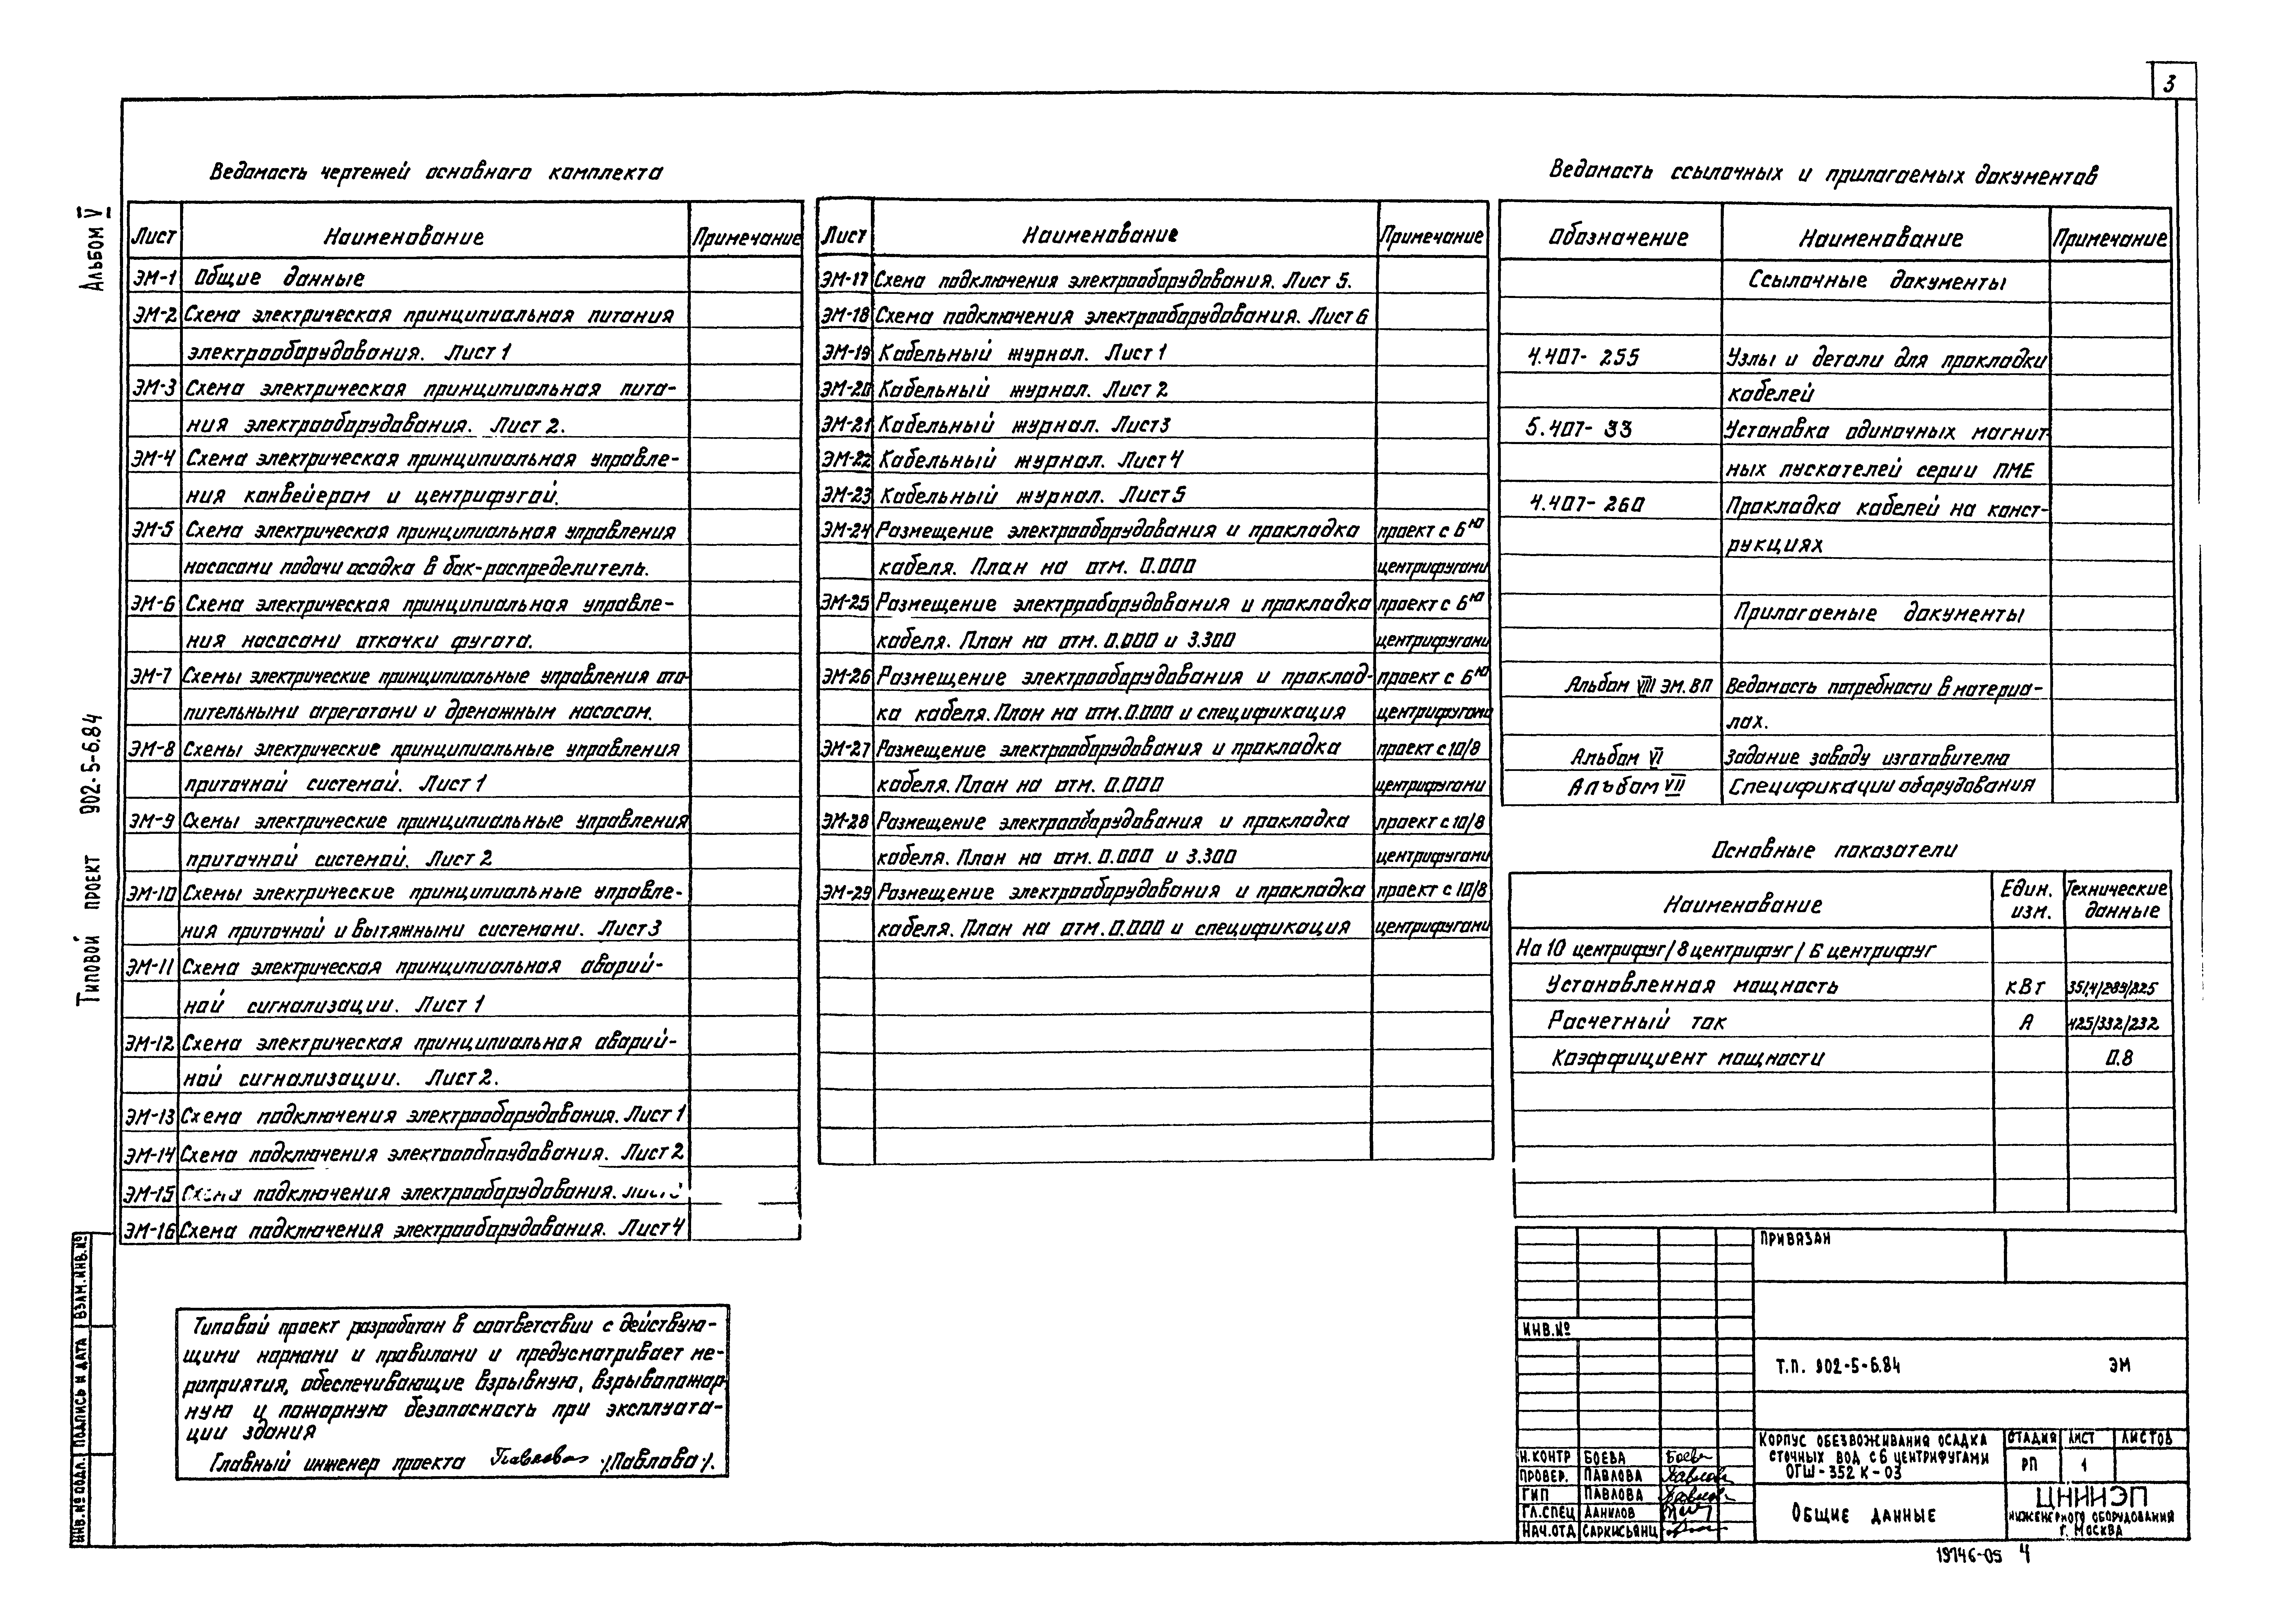 3
Альбом V
Типовой проект 902-5-6.84
Ведомость чертежей основного комплекта
Лист Наименование Примечание
ЭМ-1 Общие данные
ЭМ-2 Схема электрическая принципиальная питания
электрооборудования. Лист 1
ЭМ-3 Схема электрическая принципиальная пита-
ния электрооборудования. Лист 2.
ЭМ-4 Схема электрическая принципиальная управле-
ния конвейером и центрифугой.
ЭМ-5 Схема электрическая принципиальная управления
насосами подачи осадка в бак-распределитель.
ЭМ-6 Схема электрическая принципиальная управле-
ния насосами откачки фугата.
ЭМ-7 Схемы электрические принципиальные управления ото-
пительными агрегатами и дренажным насосом.
ЭМ-8 Схемы электрические принципиальные управления
приточной системой. Лист 1
ЭМ-9 Схемы электрические принципиальные управления
приточной системой. Лист 2
ЭМ-10 Схемы электрические принципиальные управле-
ния приточной и вытяжными системами. Лист 3
ЭМ-11 Схема электрическая принципиальная аварий-
ной сигнализации. Лист 1
ЭМ-12 Схема электрическая принципиальная аварий-
ной сигнализации. Лист 2.
ЭМ-13 Схема подключения электрооборудования. Лист 1
ЭМ-14 Схема подключения электрооборудования. Лист 2
ЭМ-15 Схема подключения электрооборудования. Лист
ЭМ-16 Схема подключения электрооборудования. Лист 4
Лист Наименование Примечание
ЭМ-17 Схема подключения электрооборудования. Лист 5.
ЭМ-18 Схема подключения электрооборудования. Лист 6
ЭМ-19 Кабельный журнал. Лист 1
ЭМ-20 Кабельный журнал. Лист 2
ЭМ-21 Кабельный журнал. Лист 3
ЭМ-22 Кабельный журнал. Лист 4
ЭМ-23 Кабельный журнал. Лист 5
ЭМ-24 Размещение электрооборудования и прокладка проект с 6ю
кабеля. План на отм. 0.000 центрифугами
ЭМ-25 Размещение электрооборудования и прокладка проект с 6ю
кабеля. План на отм. 0.000 и 3.300 центрифугами
ЭМ-26 Размещение электрооборудования и проклад- проект с 6ю
ка кабеля. План на отм. 0.000 и спецификация центрифугами
ЭМ-27 Размещение электрооборудования и прокладка проект с 10/8
кабеля. План на отм. 0.000 центрифугами
ЭМ-28 Размещение электрооборудования и прокладка проект с 10/8
кабеля. План на отм. 0.000 и 3.300 центрифугами
ЭМ-29 Размещение электрооборудования и прокладка проект с 10/8
кабеля. План на отм. 0.000 и спецификация центрифугами
Ведомость ссылочных и прилагаемых документов
Обозначение Наименование Примечание
Ссылочные документы
4.407-255 Узлы и детали для прокладки
кабелей
5.407-33 Установка одиночных магнит
ных пускателей серии ПМЕ
4.407-260 Прокладка кабелей на конст-
рукциях
Прилагаемые документы
Альбом VIII ЭМ.ВП Ведомость потребности в материа-
лах.
Альбом VI Задание заводу изготовителю
Альбом VII Спецификации оборудования
Основные показатели
Наименование Един. изм. Технические данные
На 10 центрифуг / 8 центрифуг / 6 центрифуг
Установленная мощность кВт
Расчетный ток А 425/332/232
Коэффициент мощности 0.8
Типовой проект разработан в соответствии с действую-
щими нормами и правилами и предусматривает ме-
роприятия, обеспечивающие взрывную, взрывопожар-
ную и пожарную безопасность при эксплуата-
ции здания
Главный инженер проекта Павлова /Павлова/.
ИНВ.№ ПОДЛ. ПОДПИСЬ И ДАТА ВЗАМ.ИНВ.№
ПРИВЯЗАН
ИНВ.№
Т.П. 902-5-6.84 ЭМ
Н.КОНТР БОЕВА Боева
ПРОВЕР. ПАВЛОВА
ГИП ПАВЛОВА
ГЛ.СПЕЦ ДАНИЛОВ
НАЧ.ОТД САРКИСЬЯНЦ
КОРПУС ОБЕЗВОЖИВАНИЯ ОСАДКА
СТОЧНЫХ ВОД С 6 ЦЕНТРИФУГАМИ
ОГШ-352 К-03
СТАДИЯ ЛИСТ ЛИСТОВ
РП 1
ОБЩИЕ ДАННЫЕ
ЦНИИЭП
ИНЖЕНЕРНОГО ОБОРУДОВАНИЯ
Г. МОСКВА
19746-05 4